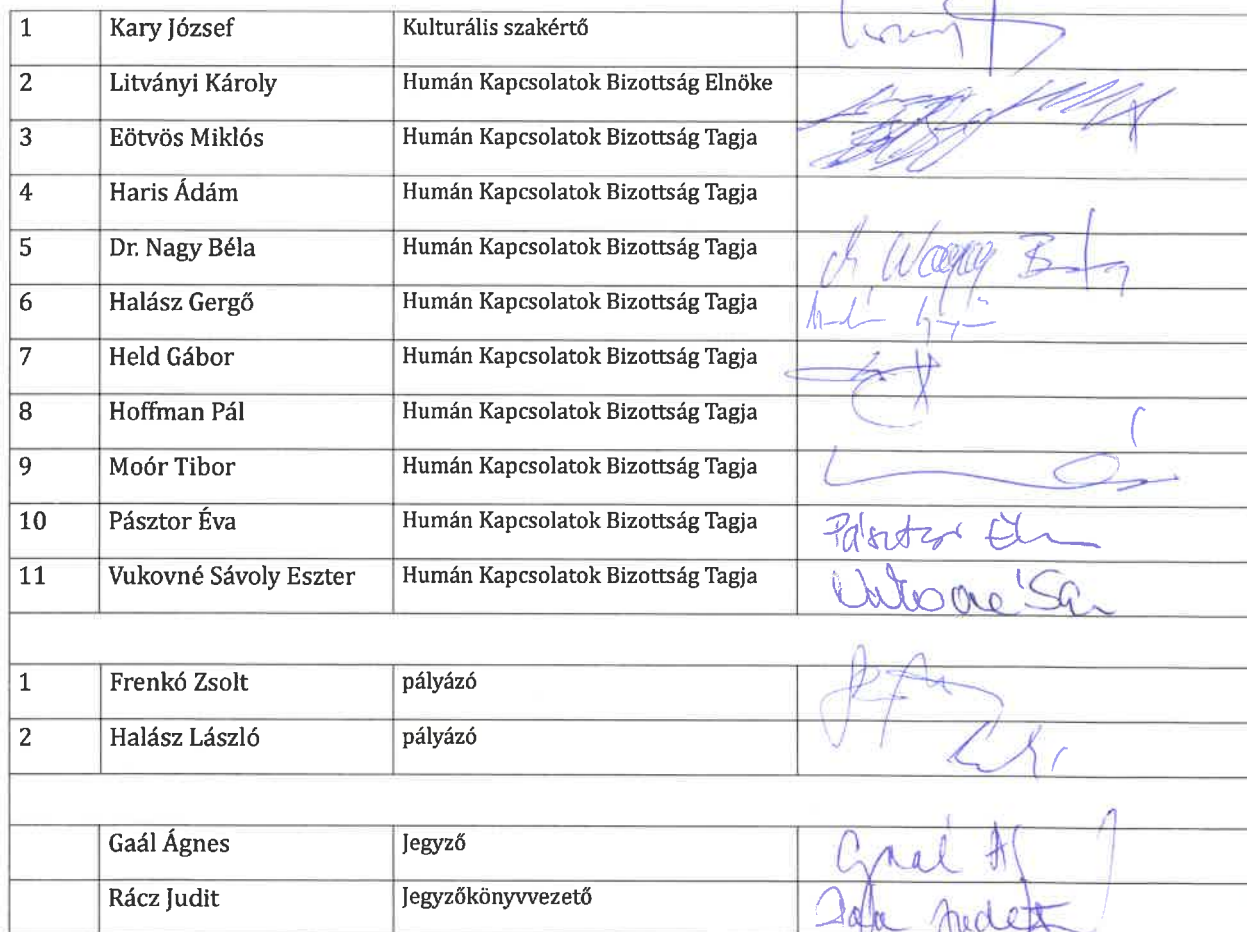 1 Kary József Kulturális szakértő
2 Litványi Károly Humán Kapcsolatok Bizottság Elnöke
3 Eötvös Miklós Humán Kapcsolatok Bizottság Tagja
4 Haris Ádám Humán Kapcsolatok Bizottság Tagja
5 Dr. Nagy Béla Humán Kapcsolatok Bizottság Tagja
6 Halász Gergő Humán Kapcsolatok Bizottság Tagja
7 Held Gábor Humán Kapcsolatok Bizottság Tagja
8 Hoffman Pál Humán Kapcsolatok Bizottság Tagja
9 Moór Tibor Humán Kapcsolatok Bizottság Tagja
10 Pásztor Éva Humán Kapcsolatok Bizottság Tagja Pásztor Éva
11 Vukovné Sávoly Eszter Humán Kapcsolatok Bizottság Tagja
1 Frenkó Zsolt pályázó
2 Halász László pályázó
Gaál Ágnes Jegyző
Rácz Judit Jegyzőkönyvvezető